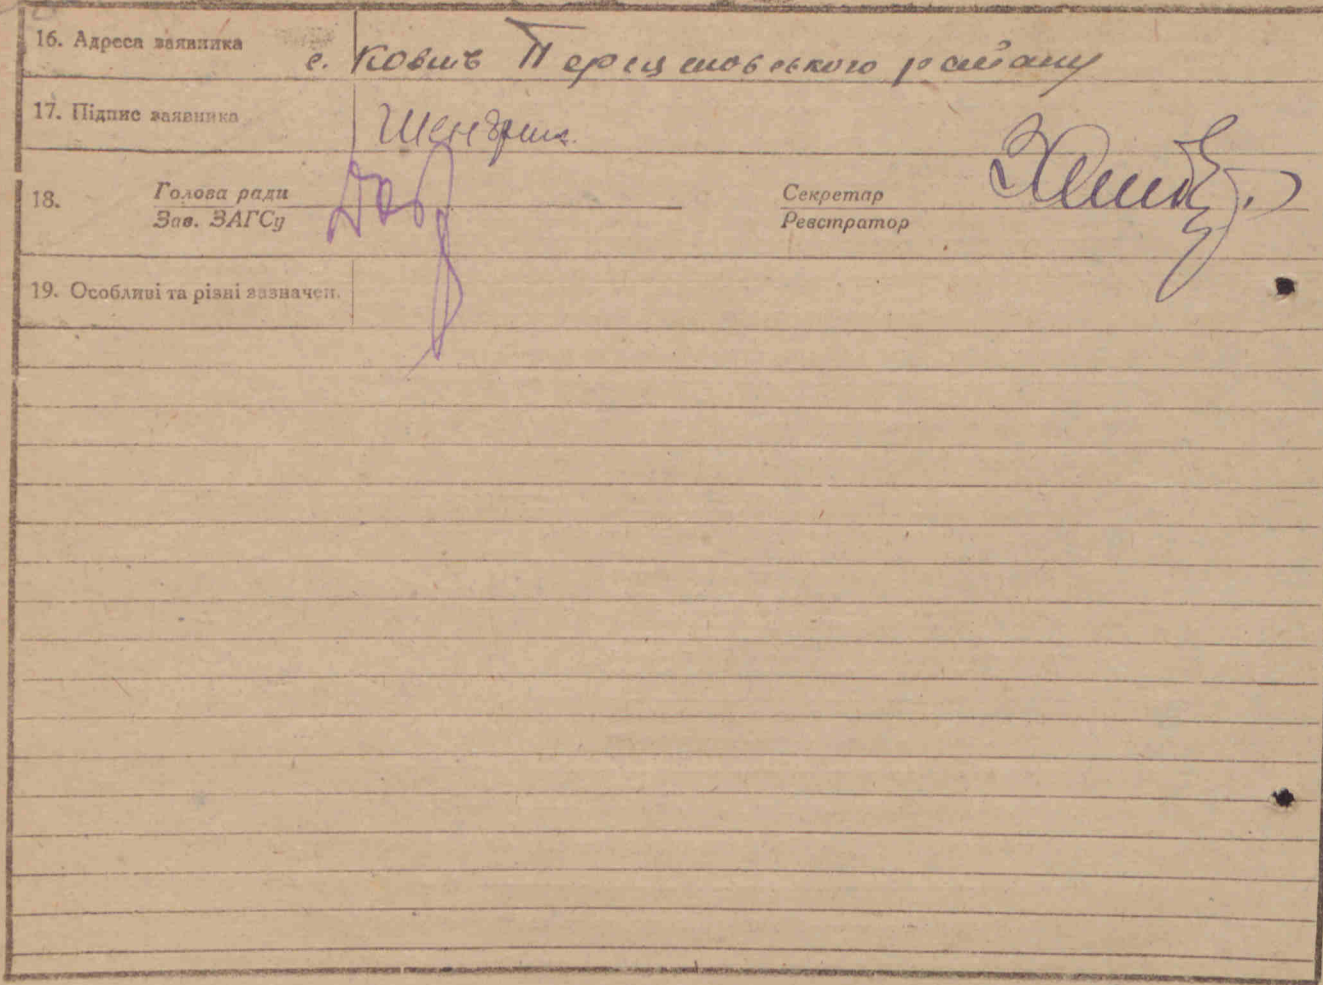 16. Адреса заявника с. Ковшъ Перещеповського району
17. Підпис заявника Шендрик
18. Голова ради Секретар
Зав. ЗАГСу Реєстратор
19. Особливі та різні зазначен.